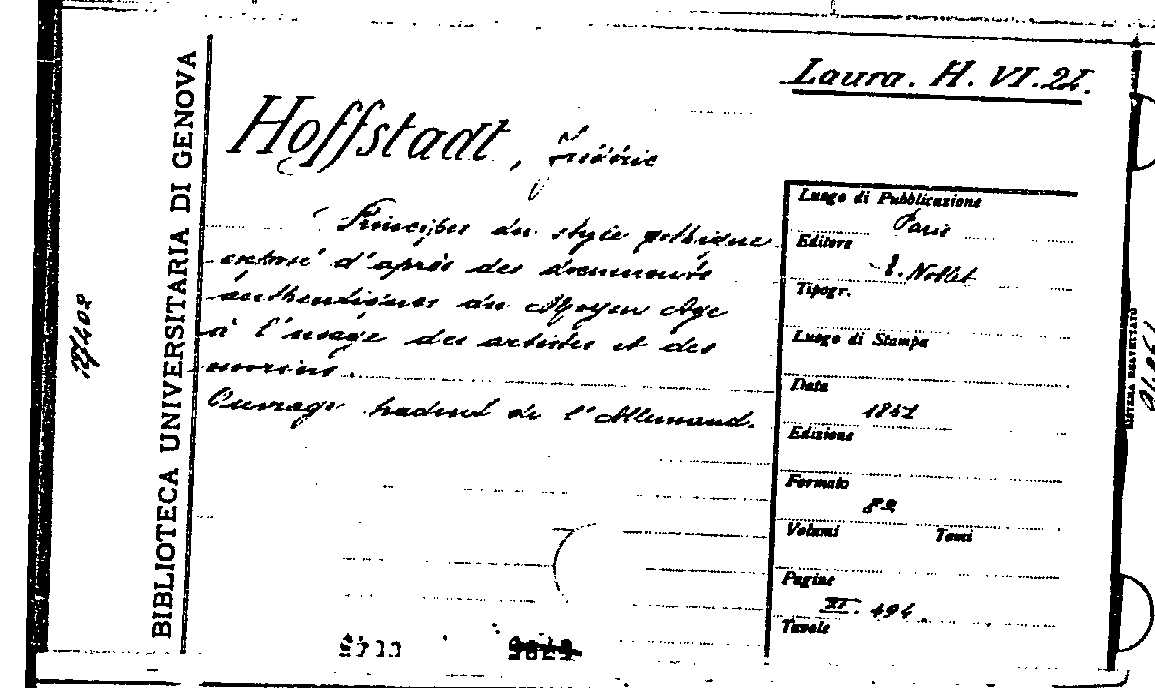 Laura. H. VI. 21.
Hoffstadt, Frédéric
Principes du style gothique
exposé d'après des documents
authentiques du Moyen Age
à l'usage des artistes et des
ouvriers.
Ouvrage traduit de l'Allemand.
BIBLIOTECA UNIVERSITARIA DI GENOVA
Luogo di Pubblicazione
Paris
Editore
Noblet
Tipogr.
Luogo di Stampa
Data
Edizione
Formato
8º
Volumi Tomi
Pagine
XI. 494.
Tavole